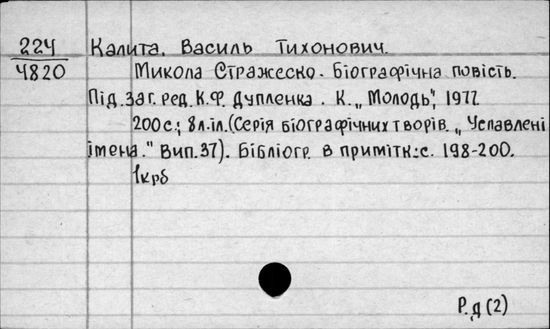 224 Калита. Василь Тихонович.
4820 Микола Стражеско. Біографічна повість.
Під. заг. ред. К.Ф. Дупленка. К. „Молодь", 1977
200 с.; 8 л. іл. (Серія біографічних творів. „Уславлені
імена." Вип. 37). Бібліогр. в приміт к: с. 198-200.
1крб
Р.д (2)